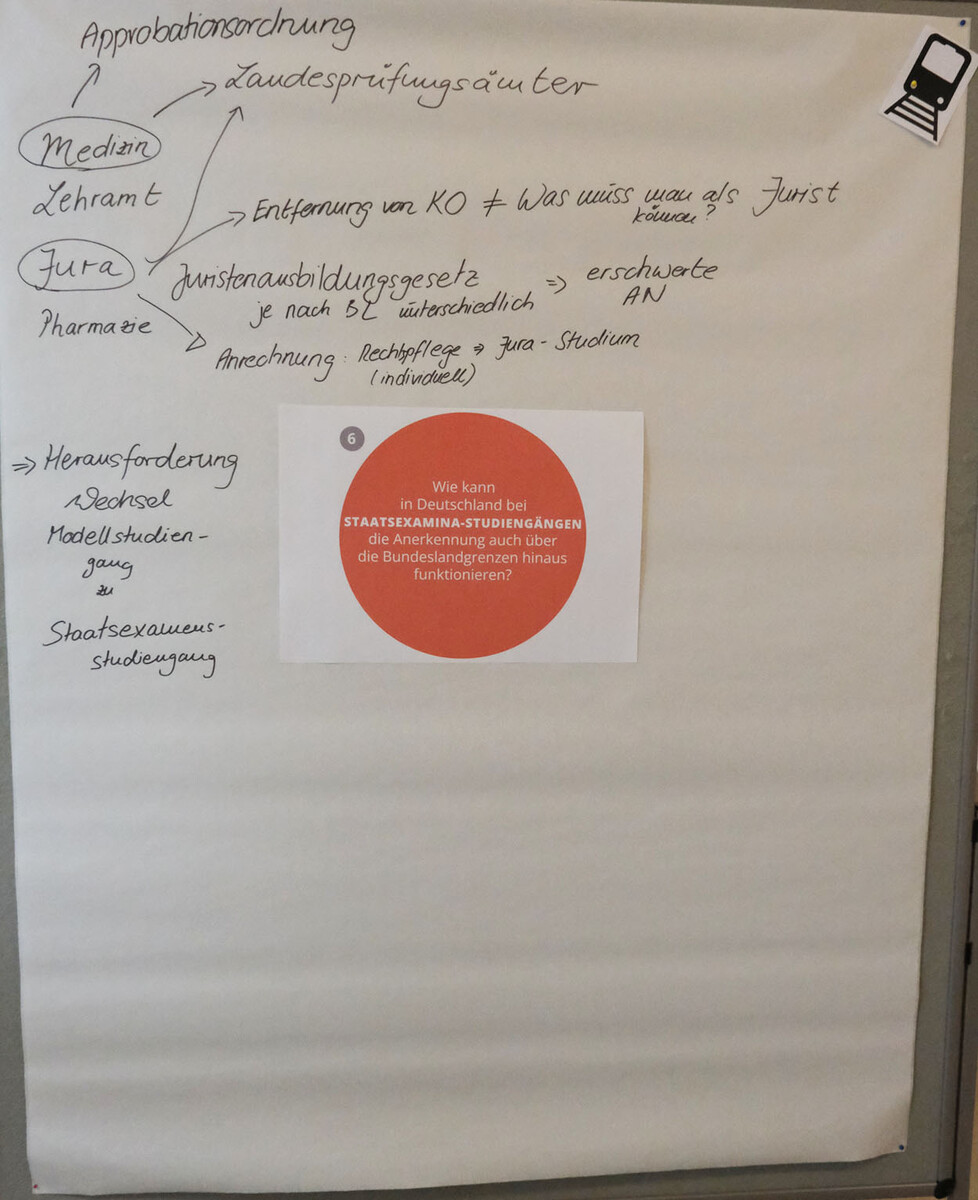 Approbationsordnung
Landesprüfungsämter
Medizin
Lehramt
Entfernung von KO ≠ Was muss man als Jurist
können?
Jura
Juristenausbildungsgesetz ⇒ erschwerte
je nach BL unterschiedlich AN
Pharmazie
Anrechnung: Rechtspflege ⇒ Jura-Studium
(individuell)
⇒ Herausforderung
Wechsel
Modellstudien-
gang
zu
Staatsexamens-
studiengang
6
Wie kann
in Deutschland bei
STAATSEXAMINA-STUDIENGÄNGEN
die Anerkennung auch über
die Bundeslandgrenzen hinaus
funktionieren?